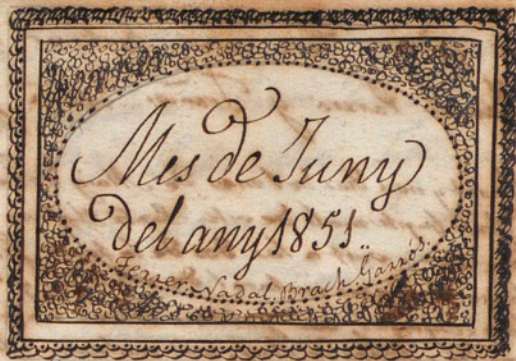 Mes de Juny
del any 1851..
Ferrer. Nadal. Brach. Garrós.